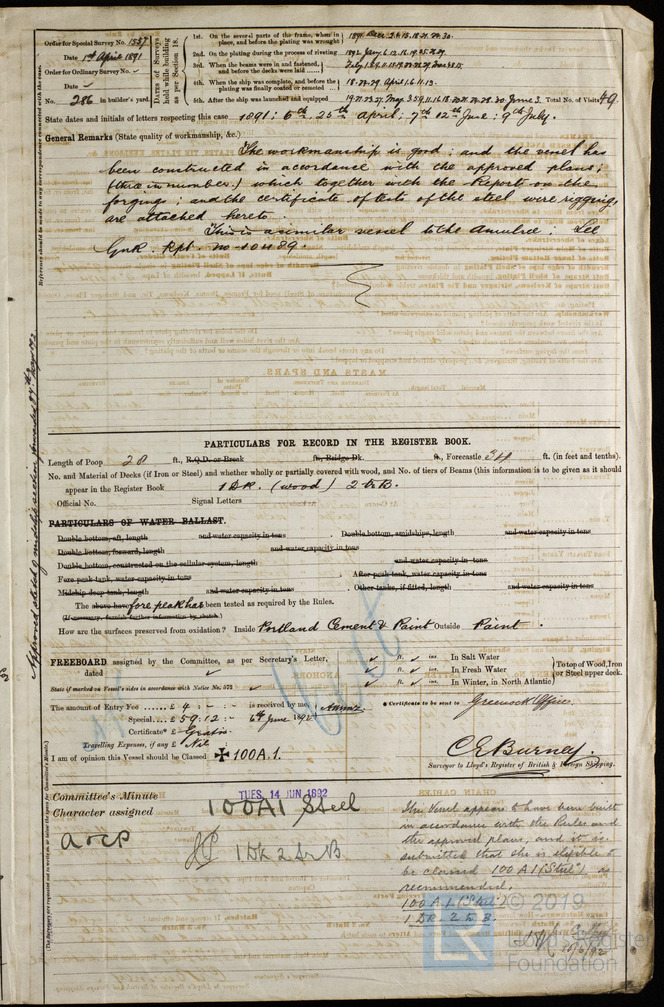 Order for Special Survey No. 1557
Date 1st April 1891
Order for Ordinary Survey No.
Date
No. 286 in builder's yard.
DATES of Surveys held while building as per Section 18.
1st. On the several parts of the frame, when in place, and before the plating was wrought
1891. Dec. 3.
2nd. On the plating during the process of riveting
1892 Jany. 6. 12.
3rd. When the beams were in and fastened, and before the decks were laid
4th. When the ship was complete, and before the plating was finally coated or cemented
18. 22. 29. April 1. 6. 11. 13.
5th. After the ship was launched and equipped
June 3. Total No. of Visits 49.
State dates and initials of letters respecting this case 1891: 6th, 25th April; 7th 12th June; 9th July.
General Remarks (State quality of workmanship, &c.)
The workmanship is good; and the vessel has
been constructed in accordance with the approved plans;
(three in number.) which together with the Report on the
forgings; and the certificate of tests of the steel wire rigging,
are attached hereto.
This is a similar vessel to the ; See
Gnk. Rpt. No 10489.
PARTICULARS FOR RECORD IN THE REGISTER BOOK.
Length of Poop 28 ft., R.Q.D. or Break ft., Bridge Dk. ft., Forecastle 34 ft. (in feet and tenths).
No. and Material of Decks (if Iron or Steel) and whether wholly or partially covered with wood, and No. of tiers of Beams (this information is to be given as it should
appear in the Register Book 1 DK. (wood) 2 tr B.
Official No. Signal Letters
PARTICULARS OF WATER BALLAST.
Double bottom, aft, length and water capacity in tons . Double bottom, amidships, length and water capacity in tons
Double bottom, forward, length and water capacity in tons
Double bottom, constructed on the cellular system, length and water capacity in tons
Fore peak tank, water capacity in tons . After peak tank, water capacity in tons
Midship deep tank, length and water capacity in tons . Other tanks, if fitted, length and water capacity in tons
The above have fore peak has been tested as required by the Rules.
(If necessary, furnish further information by sketch.)
How are the surfaces preserved from oxidation? Inside Portland Cement & Paint Outside Paint.
FREEBOARD assigned by the Committee, as per Secretary's Letter, dated
ft. ins. In Salt Water
ft. ins. In Fresh Water
ft. ins. In Winter, in North Atlantic
To top of Wood, Iron or Steel upper deck.
State if marked on Vessel's sides in accordance with Notice No. 572
The amount of Entry Fee £ 4 : - : - is received by me,
Special £ 59 : 12 : - 6th June 1892
Certificate* £ Gratis
Travelling Expenses, if any £ Nil
* Certificate to be sent to Greenock Office.
I am of opinion this Vessel should be Classed ✠ 100A.1.
C E Burney.
Surveyor to Lloyd's Register of British & Foreign Shipping.
Committee's Minute
TUES. 14 JUN 1892
Character assigned 100A1 Steel
1 Dk 2 tr B
The Vessel appears to have been built
in accordance with the Rules and
the approved plans, and it is
submitted that she is eligible to
be classed 100 A1 (Steel) as
recommended.
100 A1 (Steel)
1 DK. 2 tr B.
10/6/92
© 2019
LR
Lloyd's Register
Foundation
Approved sketch of midship section forwarded
Reference should be made to any correspondence connected with the case.